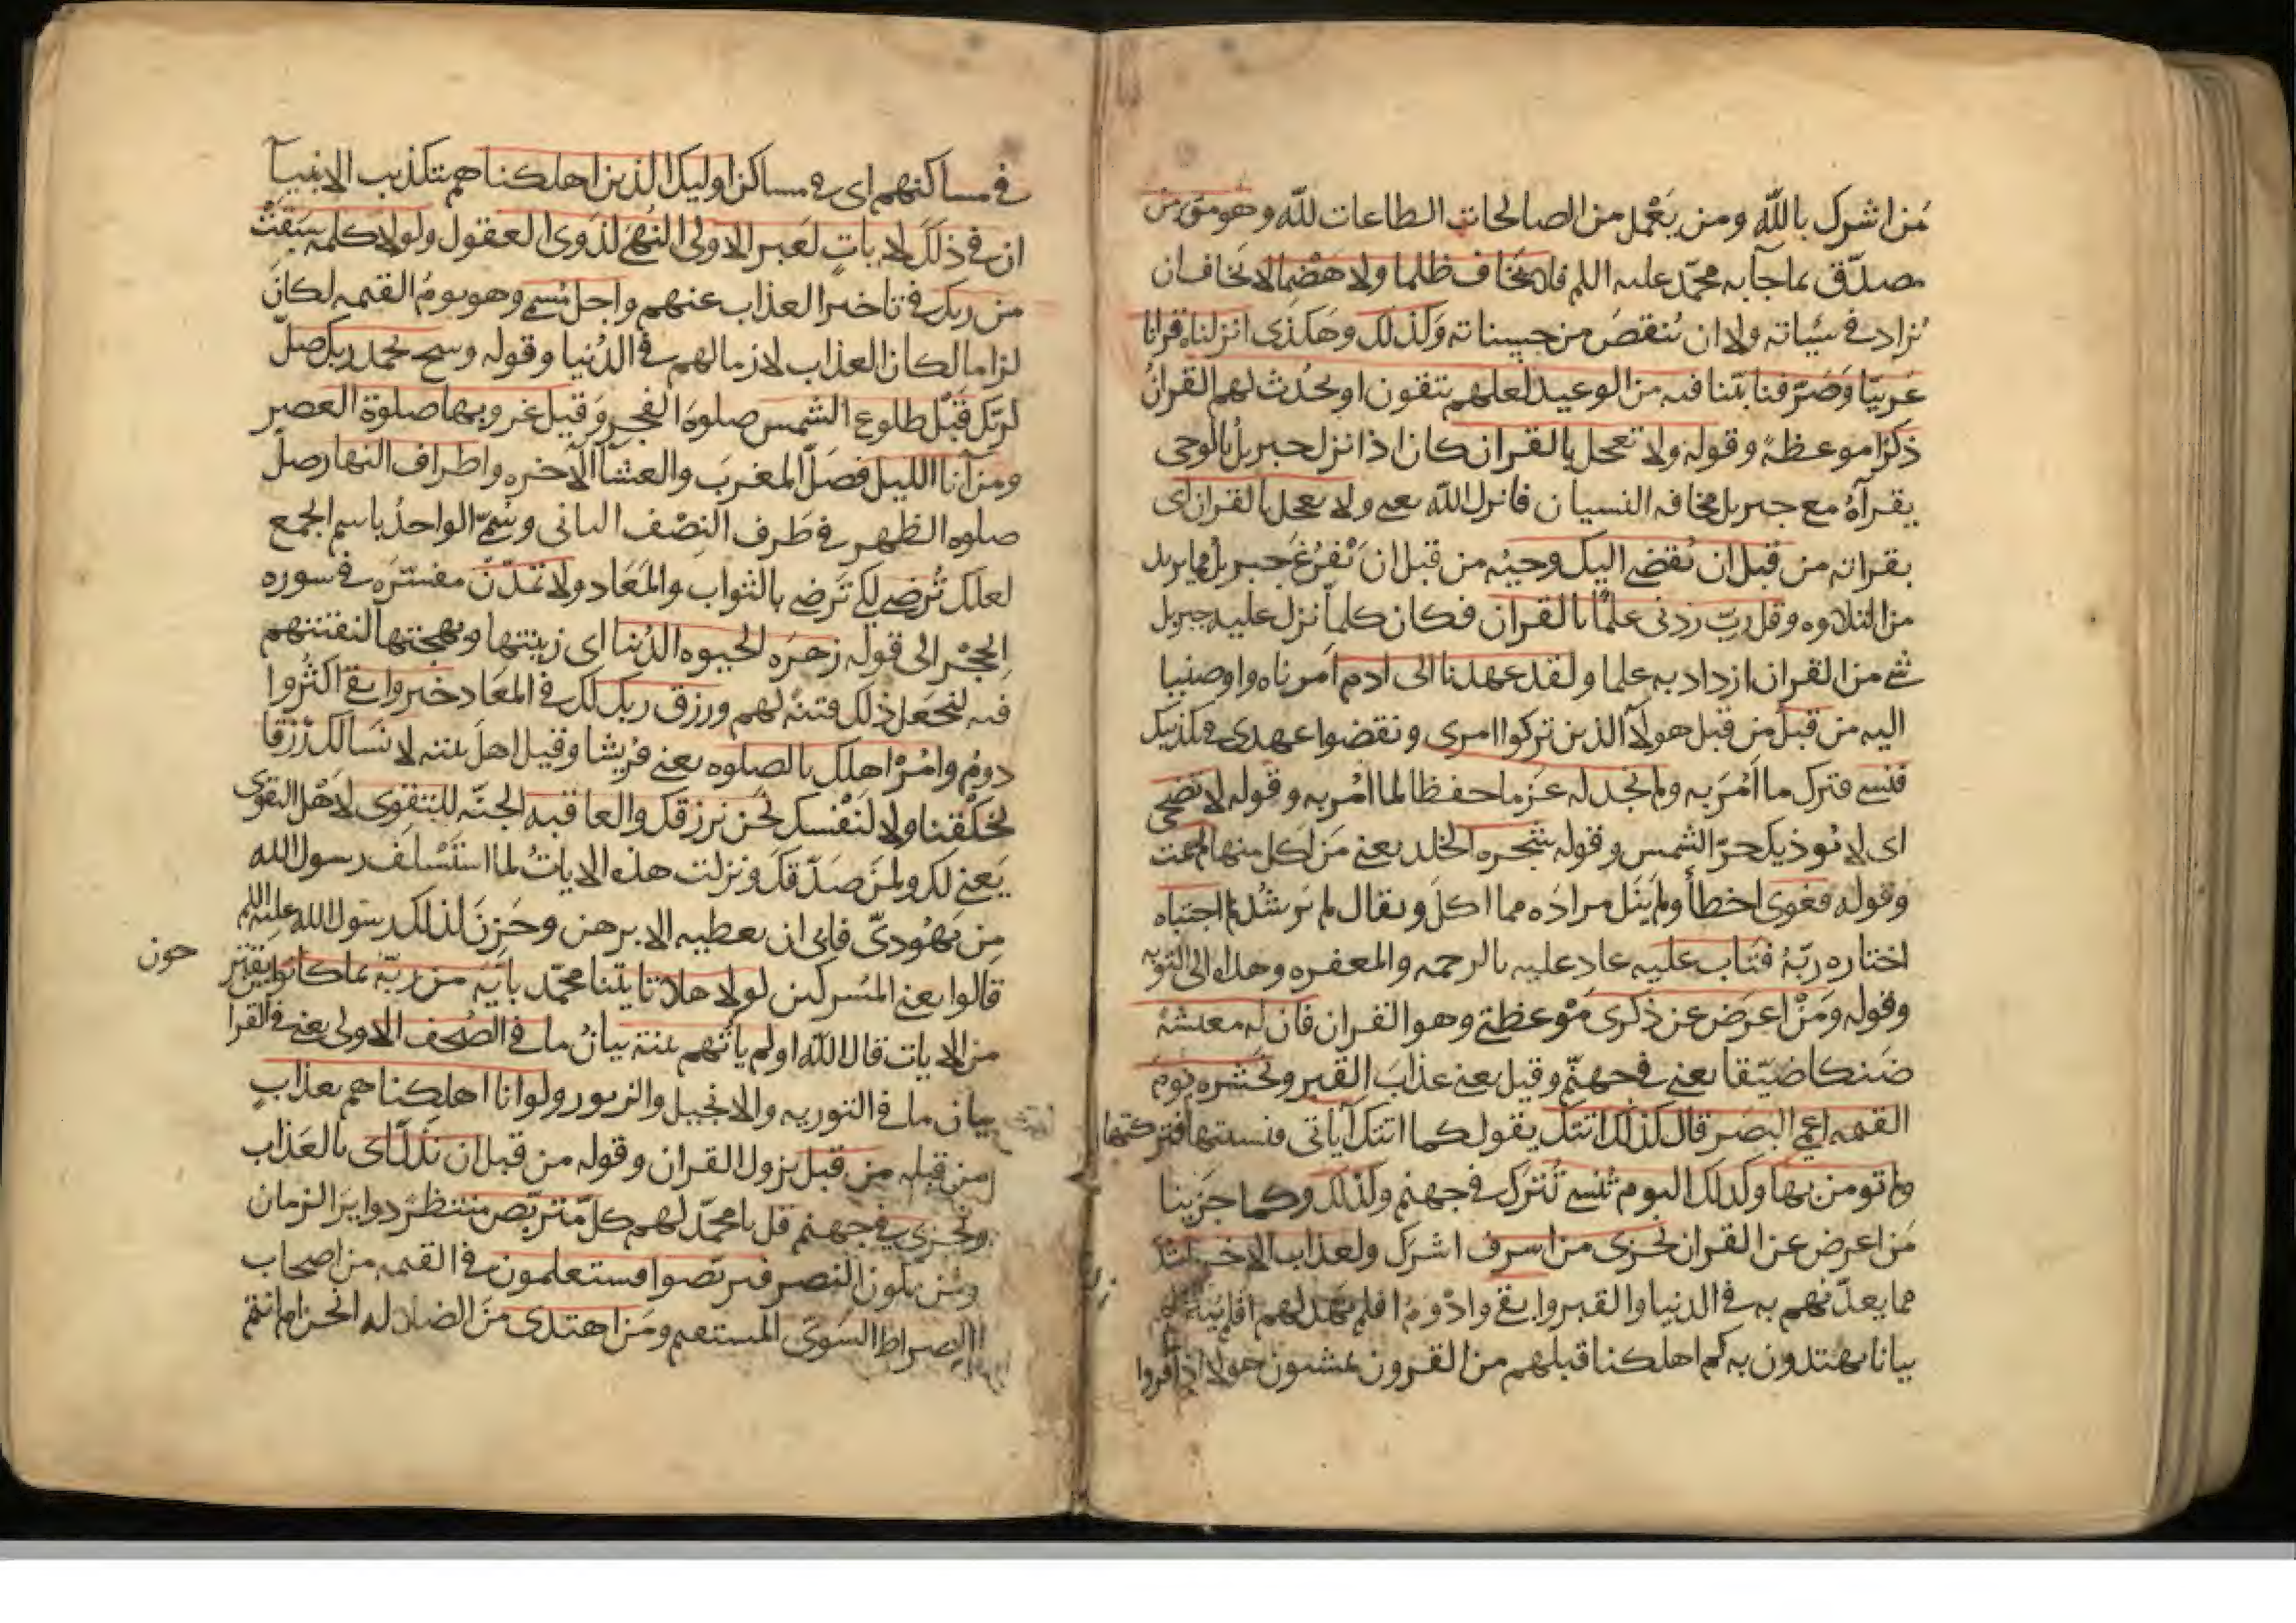 من اشرك بالله ومن يعمل من الصالحات الطاعات لله وهو مومن
مصدق بما جآ به محمد عليه السلم فلا يخاف ظلما ولا هضما لا يخاف ان
يزاد في سيّاته ولا ان ينقص من حسناته وكذلك وهكذى انزلناه قرانا
عربيّا وصرّفنا بيّنا فيه من الوعيد لعلهم يتقون او يحدث لهم القران
ذكرًا موعظة وقوله ولا تعجل بالقران كان اذا نزل جبريل بالوحى
يقرآه مع جبريل مخافه النسيان فانزل الله يعنى ولا تعجل بالقران اى
بقراته من قبل ان يقضى اليك وحيه من قبل ان يفرغ جبريل مما يريد
من التلاوه وقل رب زدنى علمًا بالقران فكان كلما نزل عليه جبريل
شى من القران ازداد به علما ولقد عهدنا الى ادم امرناه واوصينا
اليه من قبل من قبل هولآ الذين تركوا امرى ونقضوا عهدى فى تكذيبك
فنسى فترك ما امر به ولم نجد له عزما حفظا لما امر به وقوله لا تضحى
اى لا يوذيك حرّ الشمس وقوله شجره الخلد يعنى من اكل منها لم يمت
وقوله فغوى اخطأ ولم ينل مراده مما اكل ويقال لم يرشد ثم اجتباه
اختاره ربّه فتاب عليه عاد عليه بالرحمه والمغفره وهداه الى التوبه
وقوله ومن اعرض عن ذكرى موعظتى وهو القران فان له معيشة
ضنكا ضيّقا يعنى فى جهنّم وقيل يعنى عذاب القبر ونحشره يوم
القيمه اعمى البصر قال كذلك اتتك يقول كما اتتك آياتى فنسيتها فتركتها
ولم تومن بها وكذلك اليوم تنسى تترك فى جهنم وكذلك وكما جزينا
من اعرض عن القران نجزى من اسرف اشرك ولعذاب الاخره اشد
مما يعذّبهم به فى الدنيا والقبر وابقى وادوم افلم يهد لهم افلم يبيّن لهم
بيانا يهتدون به كم اهلكنا قبلهم من القرون يمشون هولا اذا مروا
فى مساكنهم اى فى مساكن اوليك الذين اهلكناهم بتكذيب الانبيآ
ان فى ذلك لايات لعبر لاولى النهى لذوى العقول ولولا كلمه سبقت
من ربك فى تاخير العذاب عنهم واجل مسمى وهو يوم القيمه لكان
لزاما لكان العذاب لازما لهم فى الدنيا وقوله وسبح بحمد ربك صل
لربك قبل طلوع الشمس صلوه الفجر وقبل غروبها صلوة العصر
ومن آنآ الليل فصل المغرب والعشآ الآخره واطراف النهار صل
صلوه الظهر فى طرف النصف الثانى وسمى الواحد باسم الجمع
لعلك ترضى لكى ترضى بالثواب والمعاد ولا تمدّنّ مفسّره فى سوره
الحجر الى قوله زهره الحيوه الدنيا اى زينتها وبهجتها لنفتنهم
فيه لنجعل ذلك فتنه لهم ورزق ربك لك فى المعاد خير وابقى اكثر وا
دوم وامر اهلك بالصلوه يعنى قريشا وقيل اهل بيته لا نسالك رزقا
لخلقنا ولا لنفسك نحن نرزقك والعاقبه الجنّه للتقوى لاهل التقوى
يعنى لك ولمن صدّقك ونزلت هذه الايات لما استسلف رسول الله
من يهودىّ فابى ان يعطيه الا برهن وحزن لذلك رسول الله عليه السلم
قالوا يعنى المشركين لولا هلا تاتينا محمد باية من ربّه بما كانوا يقتر
حون
من الايات قال الله اولم ياتهم بيّنة بيان ما فى الصحف الاولى يعنى فى القرا
بيان ما فى التوريه والانجيل والزبور ولو انا اهلكناهم بعذاب
من قبله من قبل نزول القران وقوله من قبل ان نذلّ اى بالعذاب
ونخزى فى جهنم قل يا محمد لهم كل متربص منتظر دواير الزمان
ومن يكون النصر فتربصوا فستعلمون فى القيمه من اصحاب
الصراط السوىّ المستقيم ومن اهتدى من الضلاله انحن ام انتم